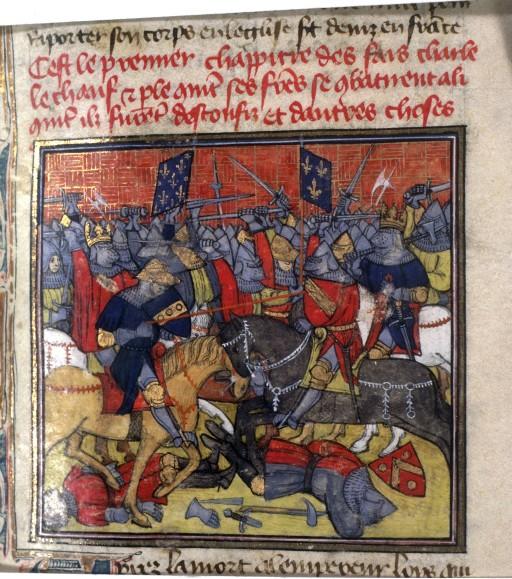 raporter son corps en leglise st denis en france
Cest le premier chappitre des fais charle
le chauf et ple quit ses freres se cbatirent a li
quit ilz furent desconfiz et dautres choses
pres la mort a lempereur loys qui